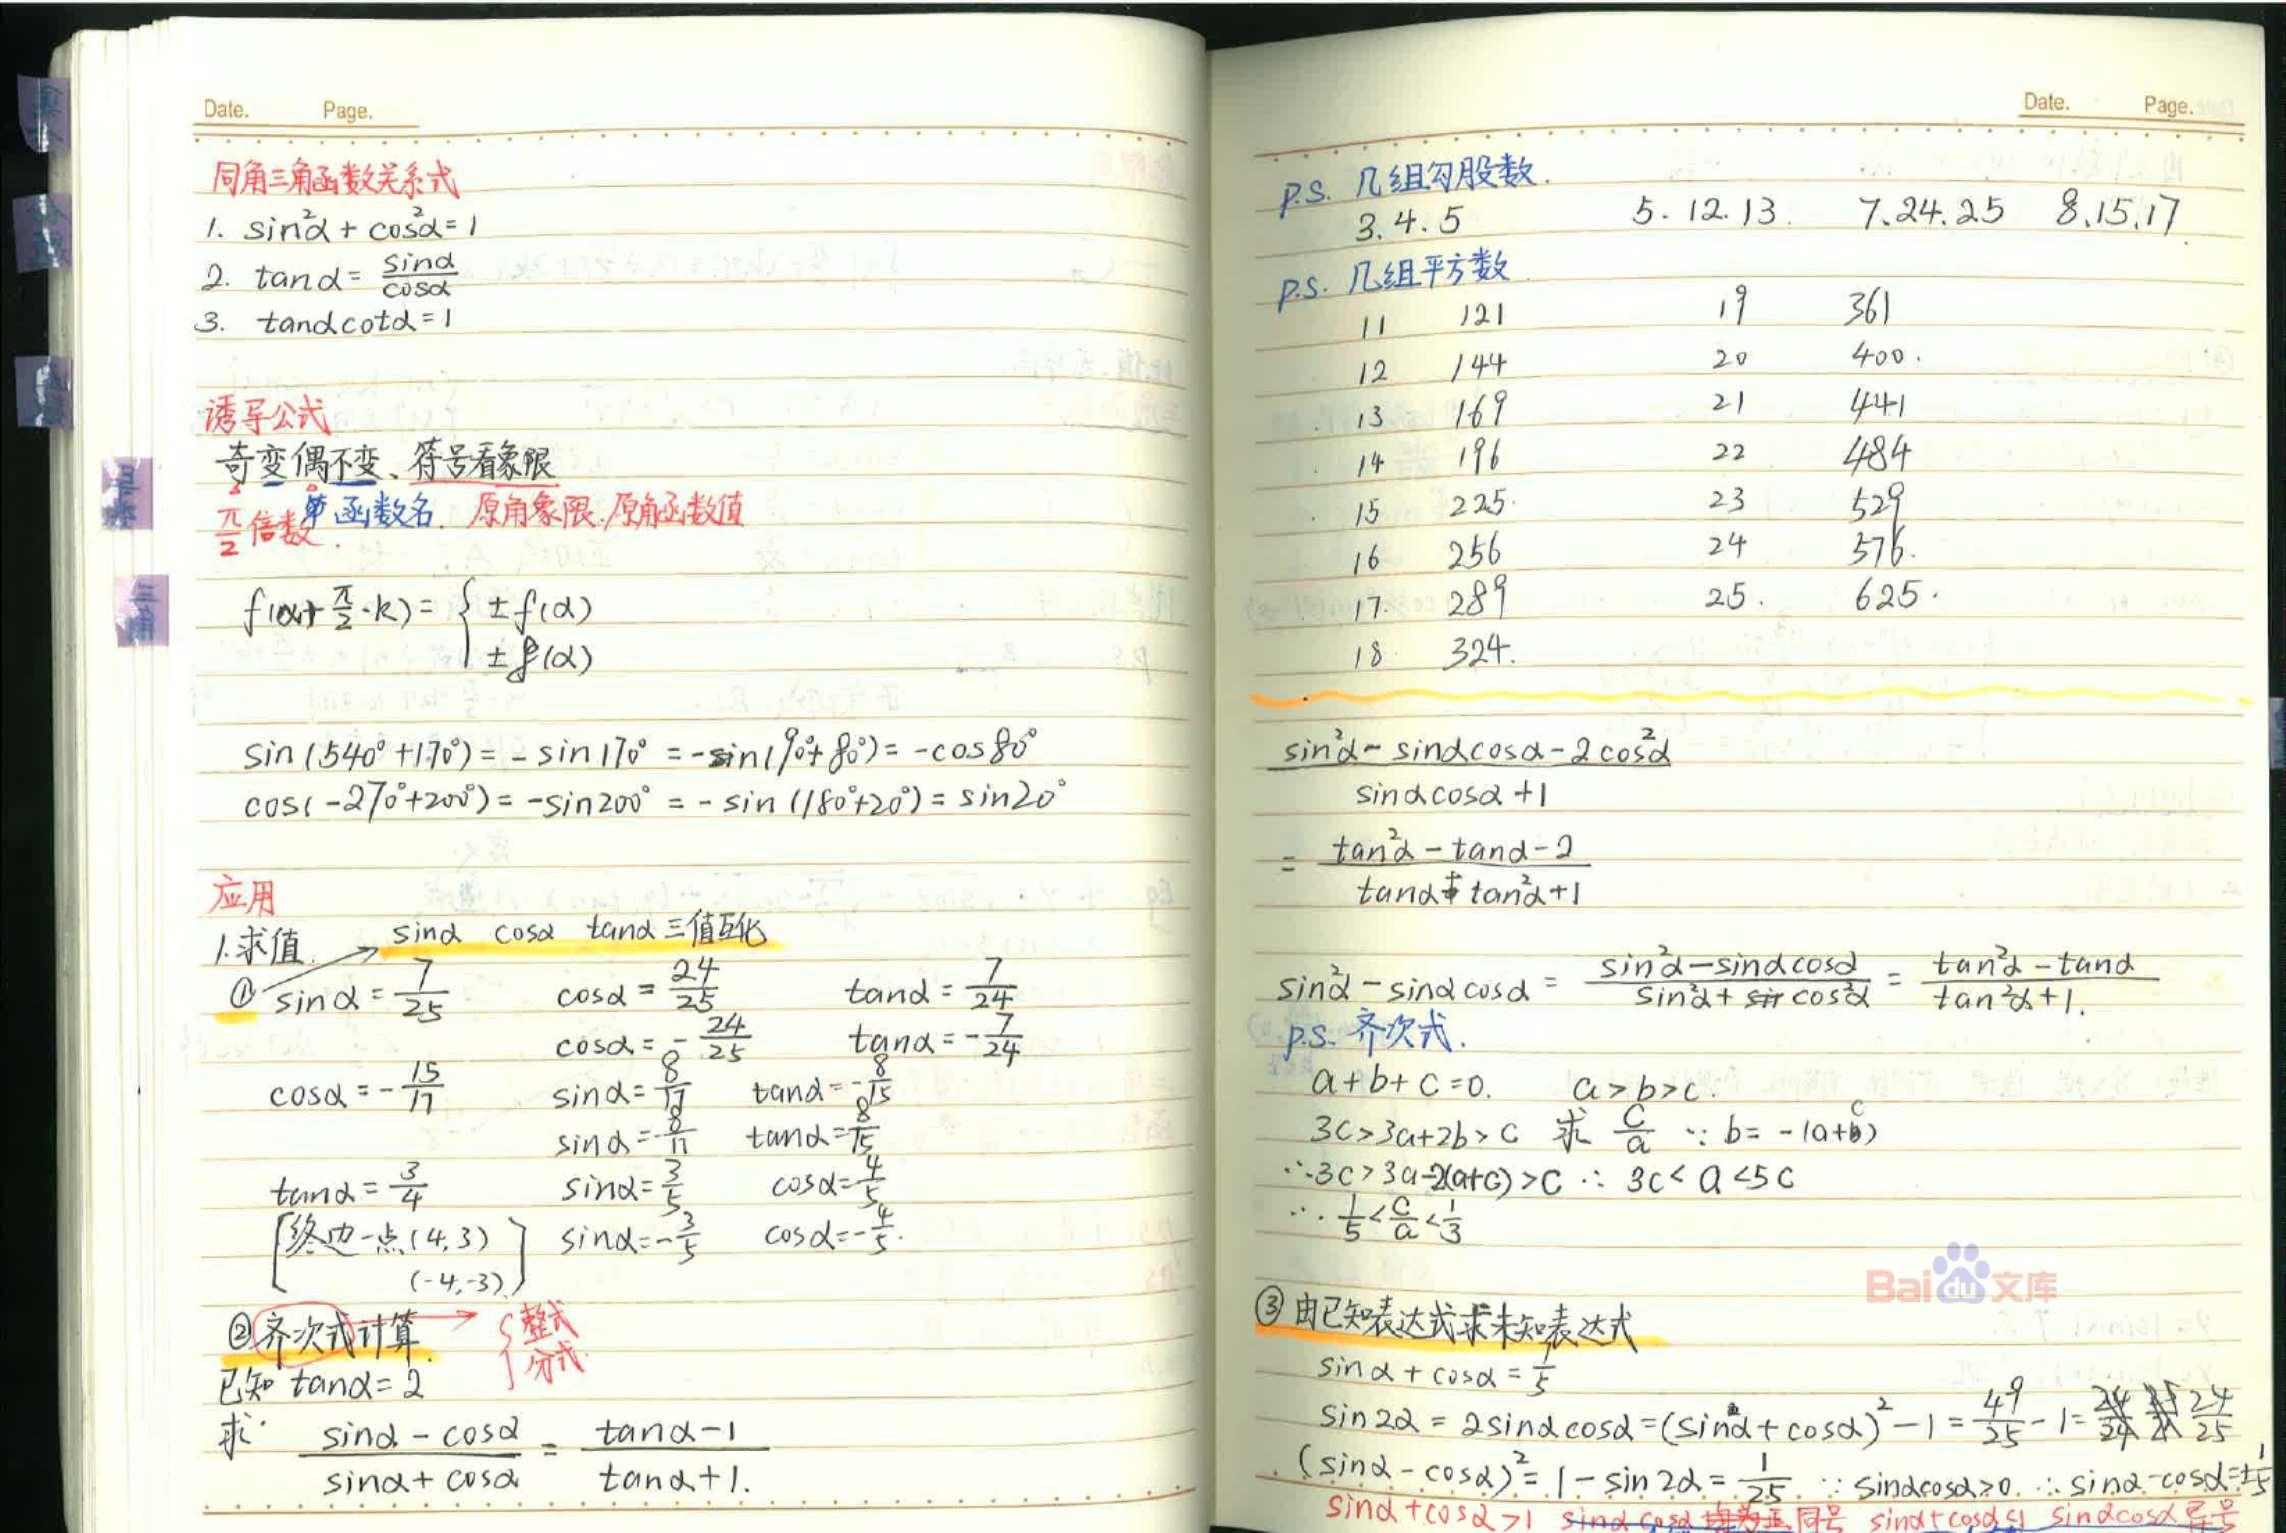 Date. Page.
同角三角函数关系式
1. sin²α + cos²α = 1
2. tanα = sinα/cosα
3. tanαcotα = 1
诱导公式
奇变偶不变、符号看象限
π/2倍数. 函数名. 原角象限.原角函数值
f(α+π/2·k) = { ±f(α)
±g(α)
sin(540°+170°) = -sin170° = -sin(90°+80°) = -cos80°
cos(-270°+200°) = -sin200° = -sin(180°+20°) = sin20°
应用
1.求值. sinα cosα tanα三值互化
① sinα = 7/25 cosα = 24/25 tanα = 7/24
cosα = -24/25 tanα = -7/24
cosα = -15/17 sinα = 8/17 tanα = -8/15
sinα = -8/17 tanα = 8/15
tanα = 3/4 sinα = 3/5 cosα = 4/5
[终边一点(4,3) sinα = -3/5 cosα = -4/5.
(-4,-3)]
②齐次式计算. { 整式
分式.
已知 tanα = 2
求· (sinα - cosα)/(sinα + cosα) = (tanα - 1)/(tanα + 1).
Date. Page.
P.S. 几组勾股数.
3.4.5 5.12.13. 7.24.25 8.15.17.
P.S. 几组平方数
11 121 19 361
12 144 20 400.
13 169 21 441
14 196 22 484
15 225. 23 529
16 256 24 576.
17. 289 25. 625.
18 324.
(sin²α - sinαcosα - 2cos²α)/(sinαcosα + 1)
= (tan²α - tanα - 2)/(tanα + tan²α + 1)
sin²α - sinαcosα = (sin²α - sinαcosα)/(sin²α + cos²α) = (tan²α - tanα)/(tan²α + 1).
P.S. 齐次式.
a+b+c=0. a>b>c.
3c>3a+2b>c 求 c/a ∵ b=-(a+c)
∴3c>3a-2(a+c)>c ∴ 3c<a<5c
∴ 1/5<c/a<1/3
Baidu文库
③由已知表达式求未知表达式
sinα + cosα = 7/5
sin2α = 2sinαcosα = (sinα + cosα)² - 1 = 49/25 - 1 = 24/25
(sinα - cosα)² = 1 - sin2α = 1/25 ∵ sinαcosα>0. ∴ sinα-cosα=±1/5
sinα+cosα>1 sinα cosα 同号 sinα+cosα<1 sinαcosα异号